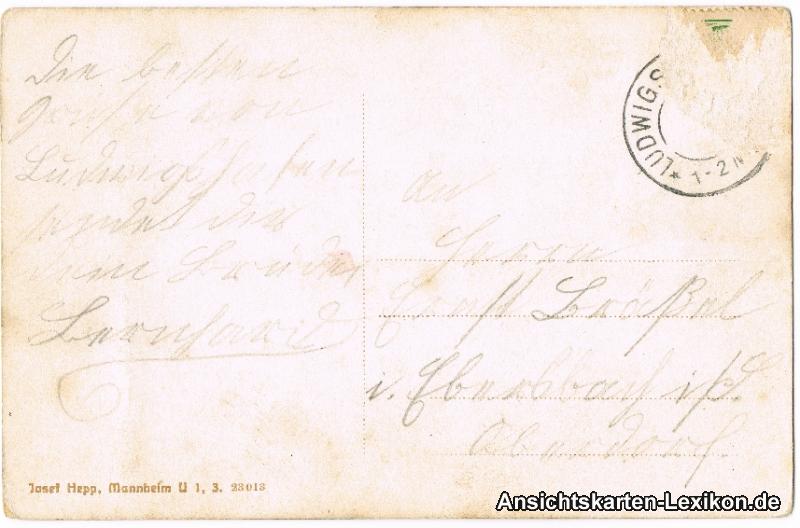 Die besten
Grüße von
Ludwigshafen
sendet dir
dein Bruder
Bernhard
LUDWIGS
1-2 N
An
Herrn
Ernst
i. Ebersbach
Oberdorf.
Josef Hepp, Mannheim U 1, 3. 23013
Ansichtskarten-Lexikon.de